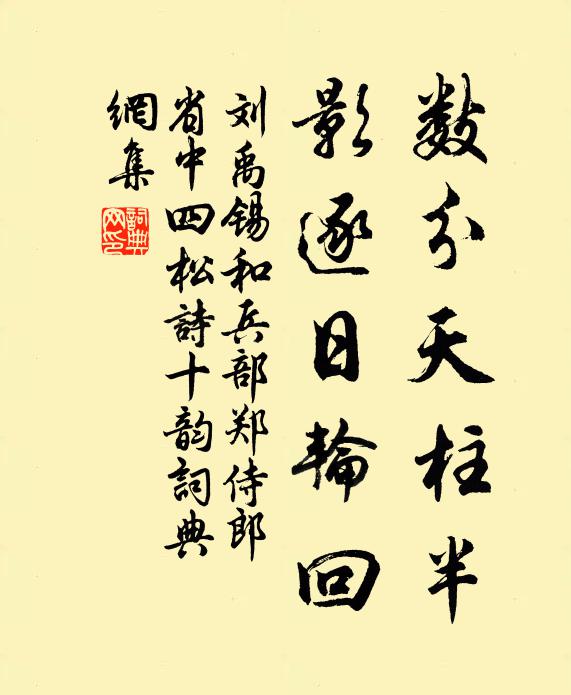 数分天柱半
影逐日輪回
刘禹锡和兵部郑侍郎
省中四松詩十韵詞典
網集
詞典网印